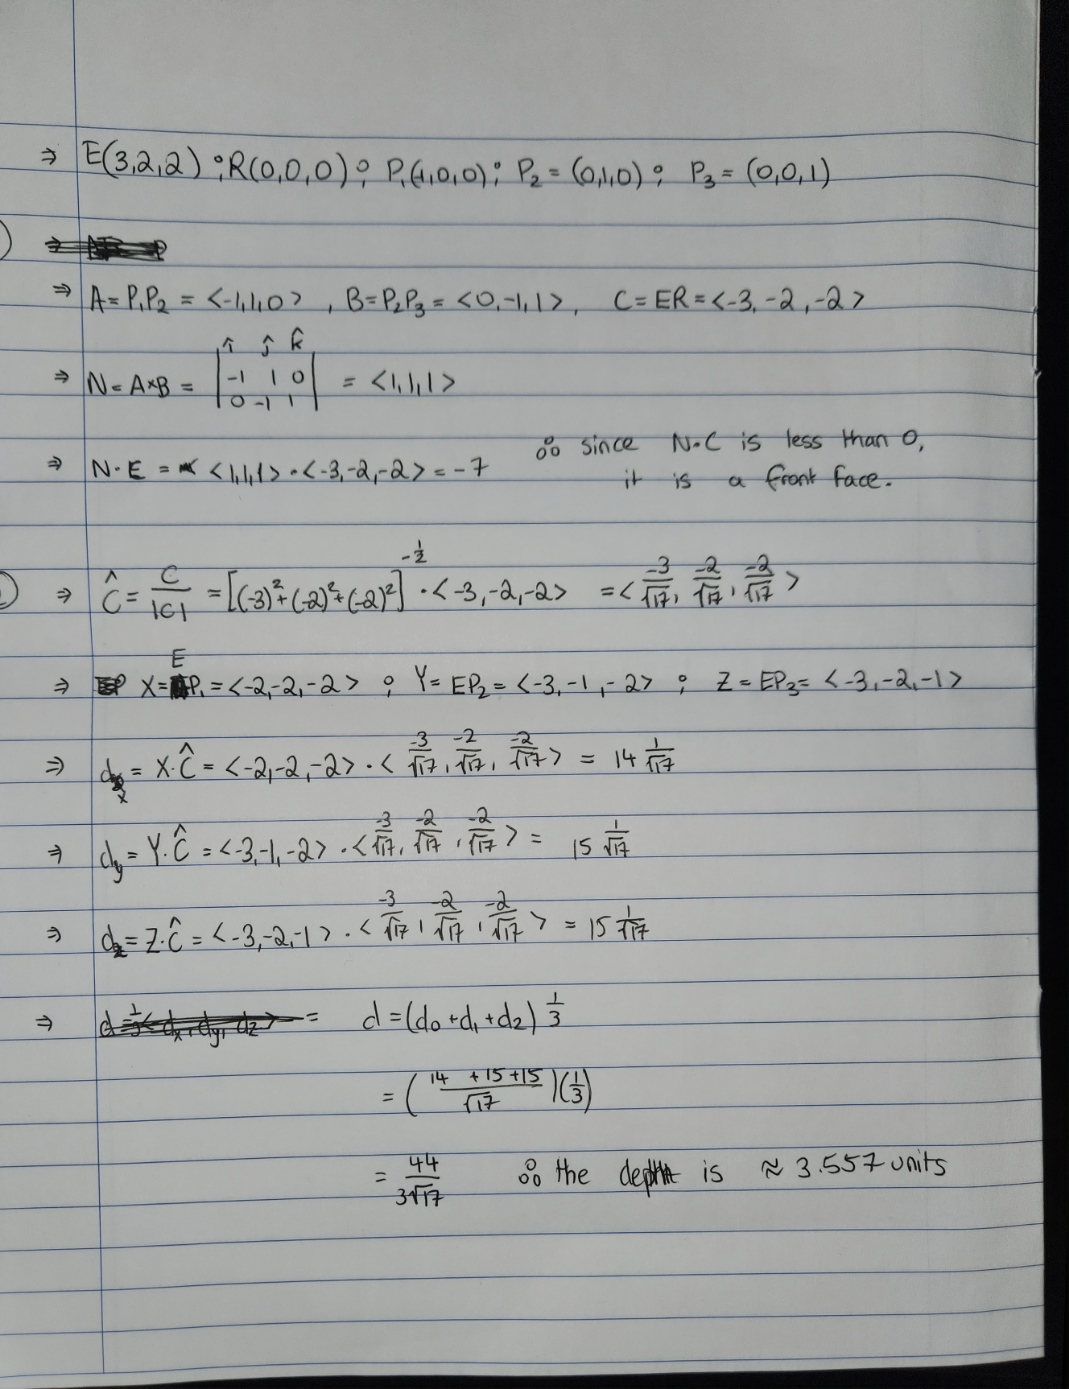 ⇒ E(3,2,2) ; R(0,0,0) ; P₁(1,0,0) ; P₂ = (0,1,0) ; P₃ = (0,0,1)
⇒ A = P₁P₂ = <-1,1,0> , B = P₂P₃ = <0,-1,1>, C = ER = <-3,-2,-2>
⇒ N = A×B = | î ĵ k̂ ; -1 1 0 ; 0 -1 1 | = <1,1,1>
⇒ N·E = <1,1,1>·<-3,-2,-2> = -7 ∴ since N·C is less than 0,
it is a front face.
⇒ Ĉ = C/|C| = [(-3)²+(-2)²+(-2)²]^(-1/2) · <-3,-2,-2> = <-3/√17, -2/√17, -2/√17>
⇒ X = EP₁ = <-2,-2,-2> ; Y = EP₂ = <-3,-1,-2> ; Z = EP₃ = <-3,-2,-1>
⇒ dₓ = X·Ĉ = <-2,-2,-2> · <-3/√17, -2/√17, -2/√17> = 14 1/√17
⇒ dy = Y·Ĉ = <-3,-1,-2> · <-3/√17, -2/√17, -2/√17> = 15 1/√17
⇒ dz = Z·Ĉ = <-3,-2,-1> · <-3/√17, -2/√17, -2/√17> = 15 1/√17
⇒ = d = (d₀ + d₁ + d₂) 1/3
= ((14 + 15 + 15)/√17)(1/3)
= 44/(3√17) ∴ the depth is ≈ 3.557 units